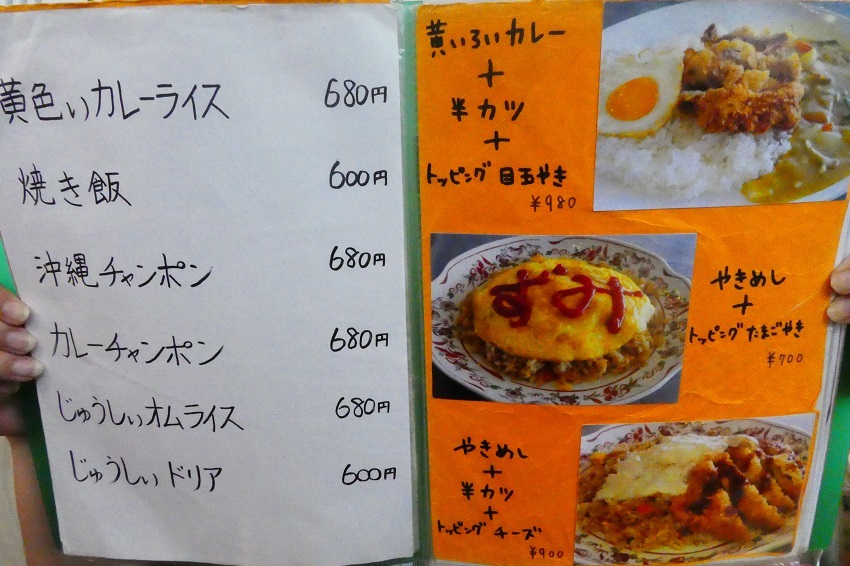 黄色いカレーライス 680円
焼き飯 600円
沖縄チャンポン 680円
カレーチャンポン 680円
じゅうしぃオムライス 680円
じゅうしぃドリア 600円
黄いろいカレー
+
半カツ
+
トッピング 目玉やき
¥980
ずみ
やきめし
+
トッピングたまごやき
¥700
やきめし
+
半カツ
+
トッピング チーズ
¥900